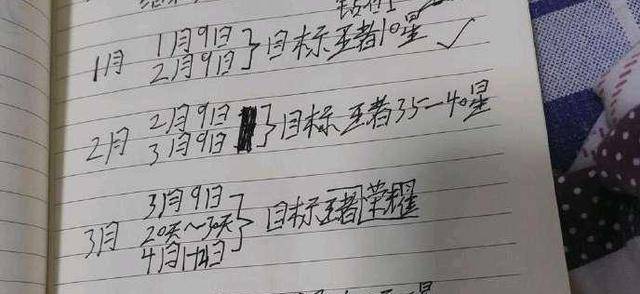 1月 1月9日
2月9日 } 目标王者10星 ✓
2月 2月9日
3月9日 } 目标王者35-40星
3月9日
3月 20天~30天 } 目标王者荣耀
4月1-4日
星